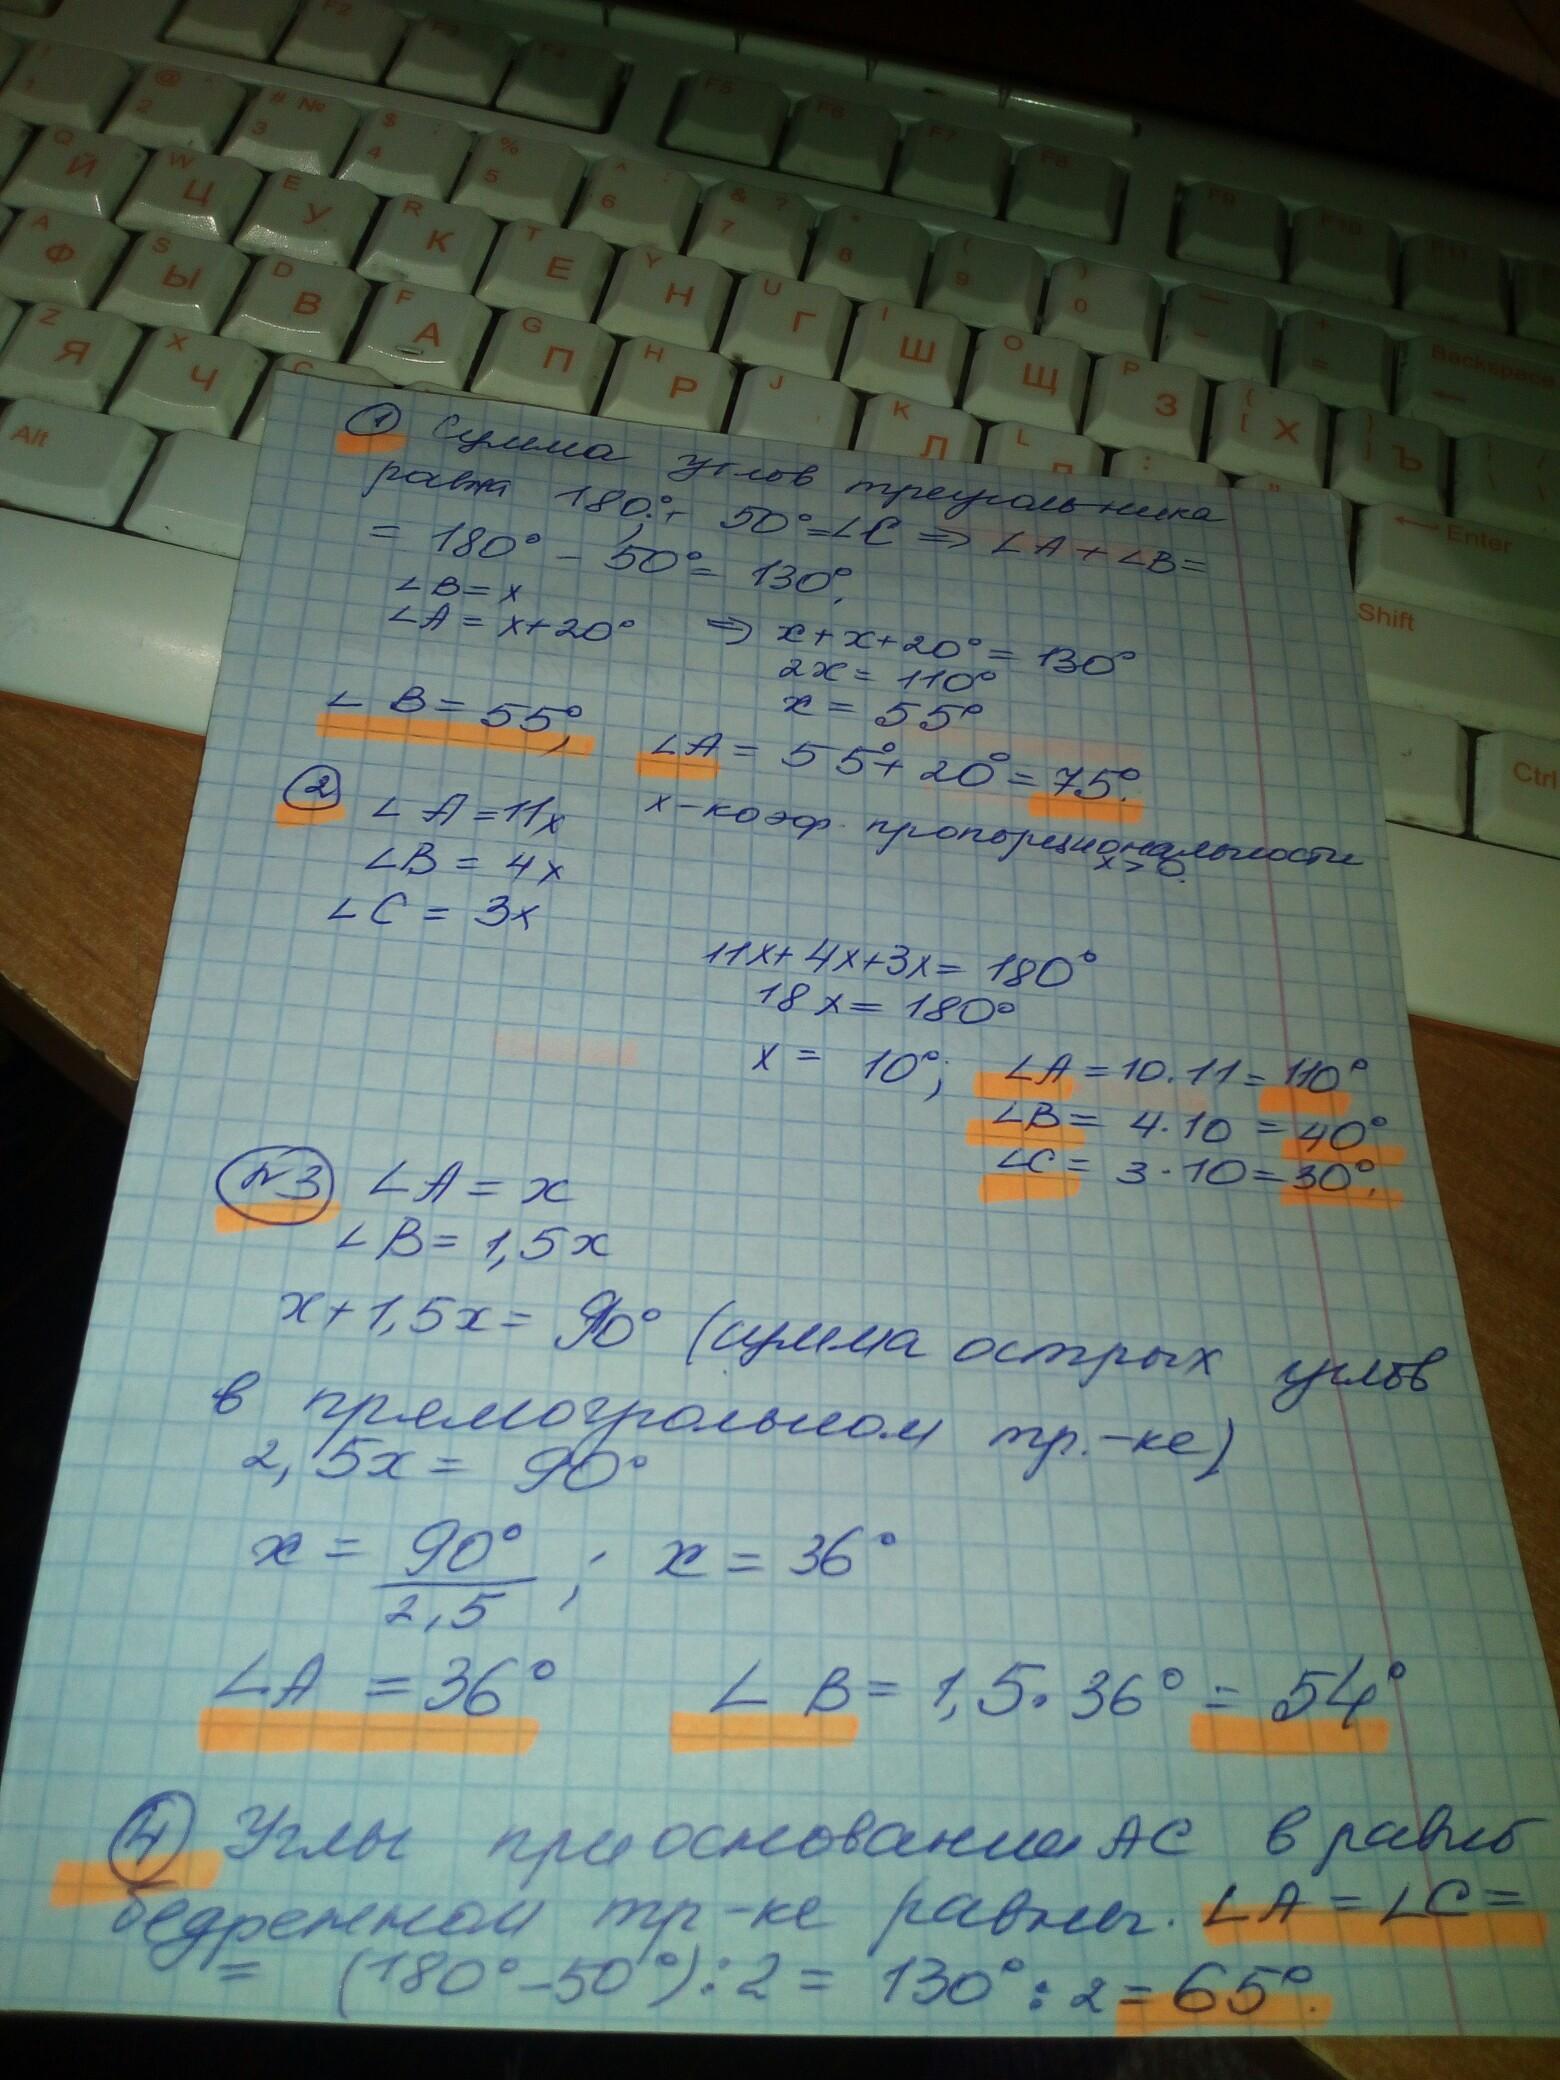 F2 F3 F4 F5 F6 F7 F8 F9 F10 F11
! 1 @ 2 # № 3 $ ; 4 % 5 ^ : 6 & ? 7 * 8 ( 9 ) 0 — - + = Backspace
Q Й W Ц E У R К T Е Y Н U Г I Ш O Щ P З { [ Х } ] Ъ
A Ф S Ы D В F А G П H Р J К Л L : " Enter
Z Я X Ч C Shift
Alt Ctrl
① Сумма углов треугольника
равна 180°; 50°=∠C ⇒ ∠A+∠B=
= 180° − 50° = 130°.
∠B = x
∠A = x+20° ⇒ x+x+20° = 130°
2x = 110°
x = 55°
∠B = 55°, ∠A = 55°+20° = 75°.
② ∠A = 11x x-коэф. пропорциональности
x>0.
∠B = 4x
∠C = 3x
11x+4x+3x = 180°
18x = 180°
x = 10°; ∠A = 10·11 = 110°
∠B = 4·10 = 40°
∠C = 3·10 = 30°.
№3 ∠A = x
∠B = 1,5x
x+1,5x = 90° (сумма острых углов
в прямоугольном тр.-ке)
2,5x = 90°
x = 90°/2,5 ; x = 36°
∠A = 36° ∠B = 1,5·36° = 54°
④ Углы при основании AC в равно
бедренном тр-ке равны. ∠A = ∠C =
= (180°−50°):2 = 130°:2 = 65°.